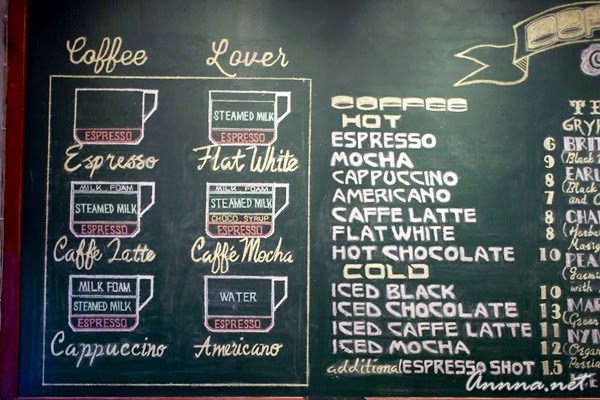 Coffee Lover
ESPRESSO
Espresso
STEAMED MILK
ESPRESSO
Flat White
MILK FOAM
STEAMED MILK
ESPRESSO
Caffè Latte
MILK FOAM
STEAMED MILK
CHOCO SYRUP
ESPRESSO
Caffé Mocha
MILK FOAM
STEAMED MILK
ESPRESSO
Cappuccino
WATER
ESPRESSO
Americano
COFFEE
HOT
ESPRESSO 6
MOCHA 9
CAPPUCCINO 8
AMERICANO 7
CAFFE LATTE 8
FLAT WHITE 8
HOT CHOCOLATE 10
COLD
ICED BLACK 10
ICED CHOCOLATE 13
ICED CAFFE LATTE 11
ICED MOCHA 12
additional ESPRESSO SHOT 1.5
Annna.net